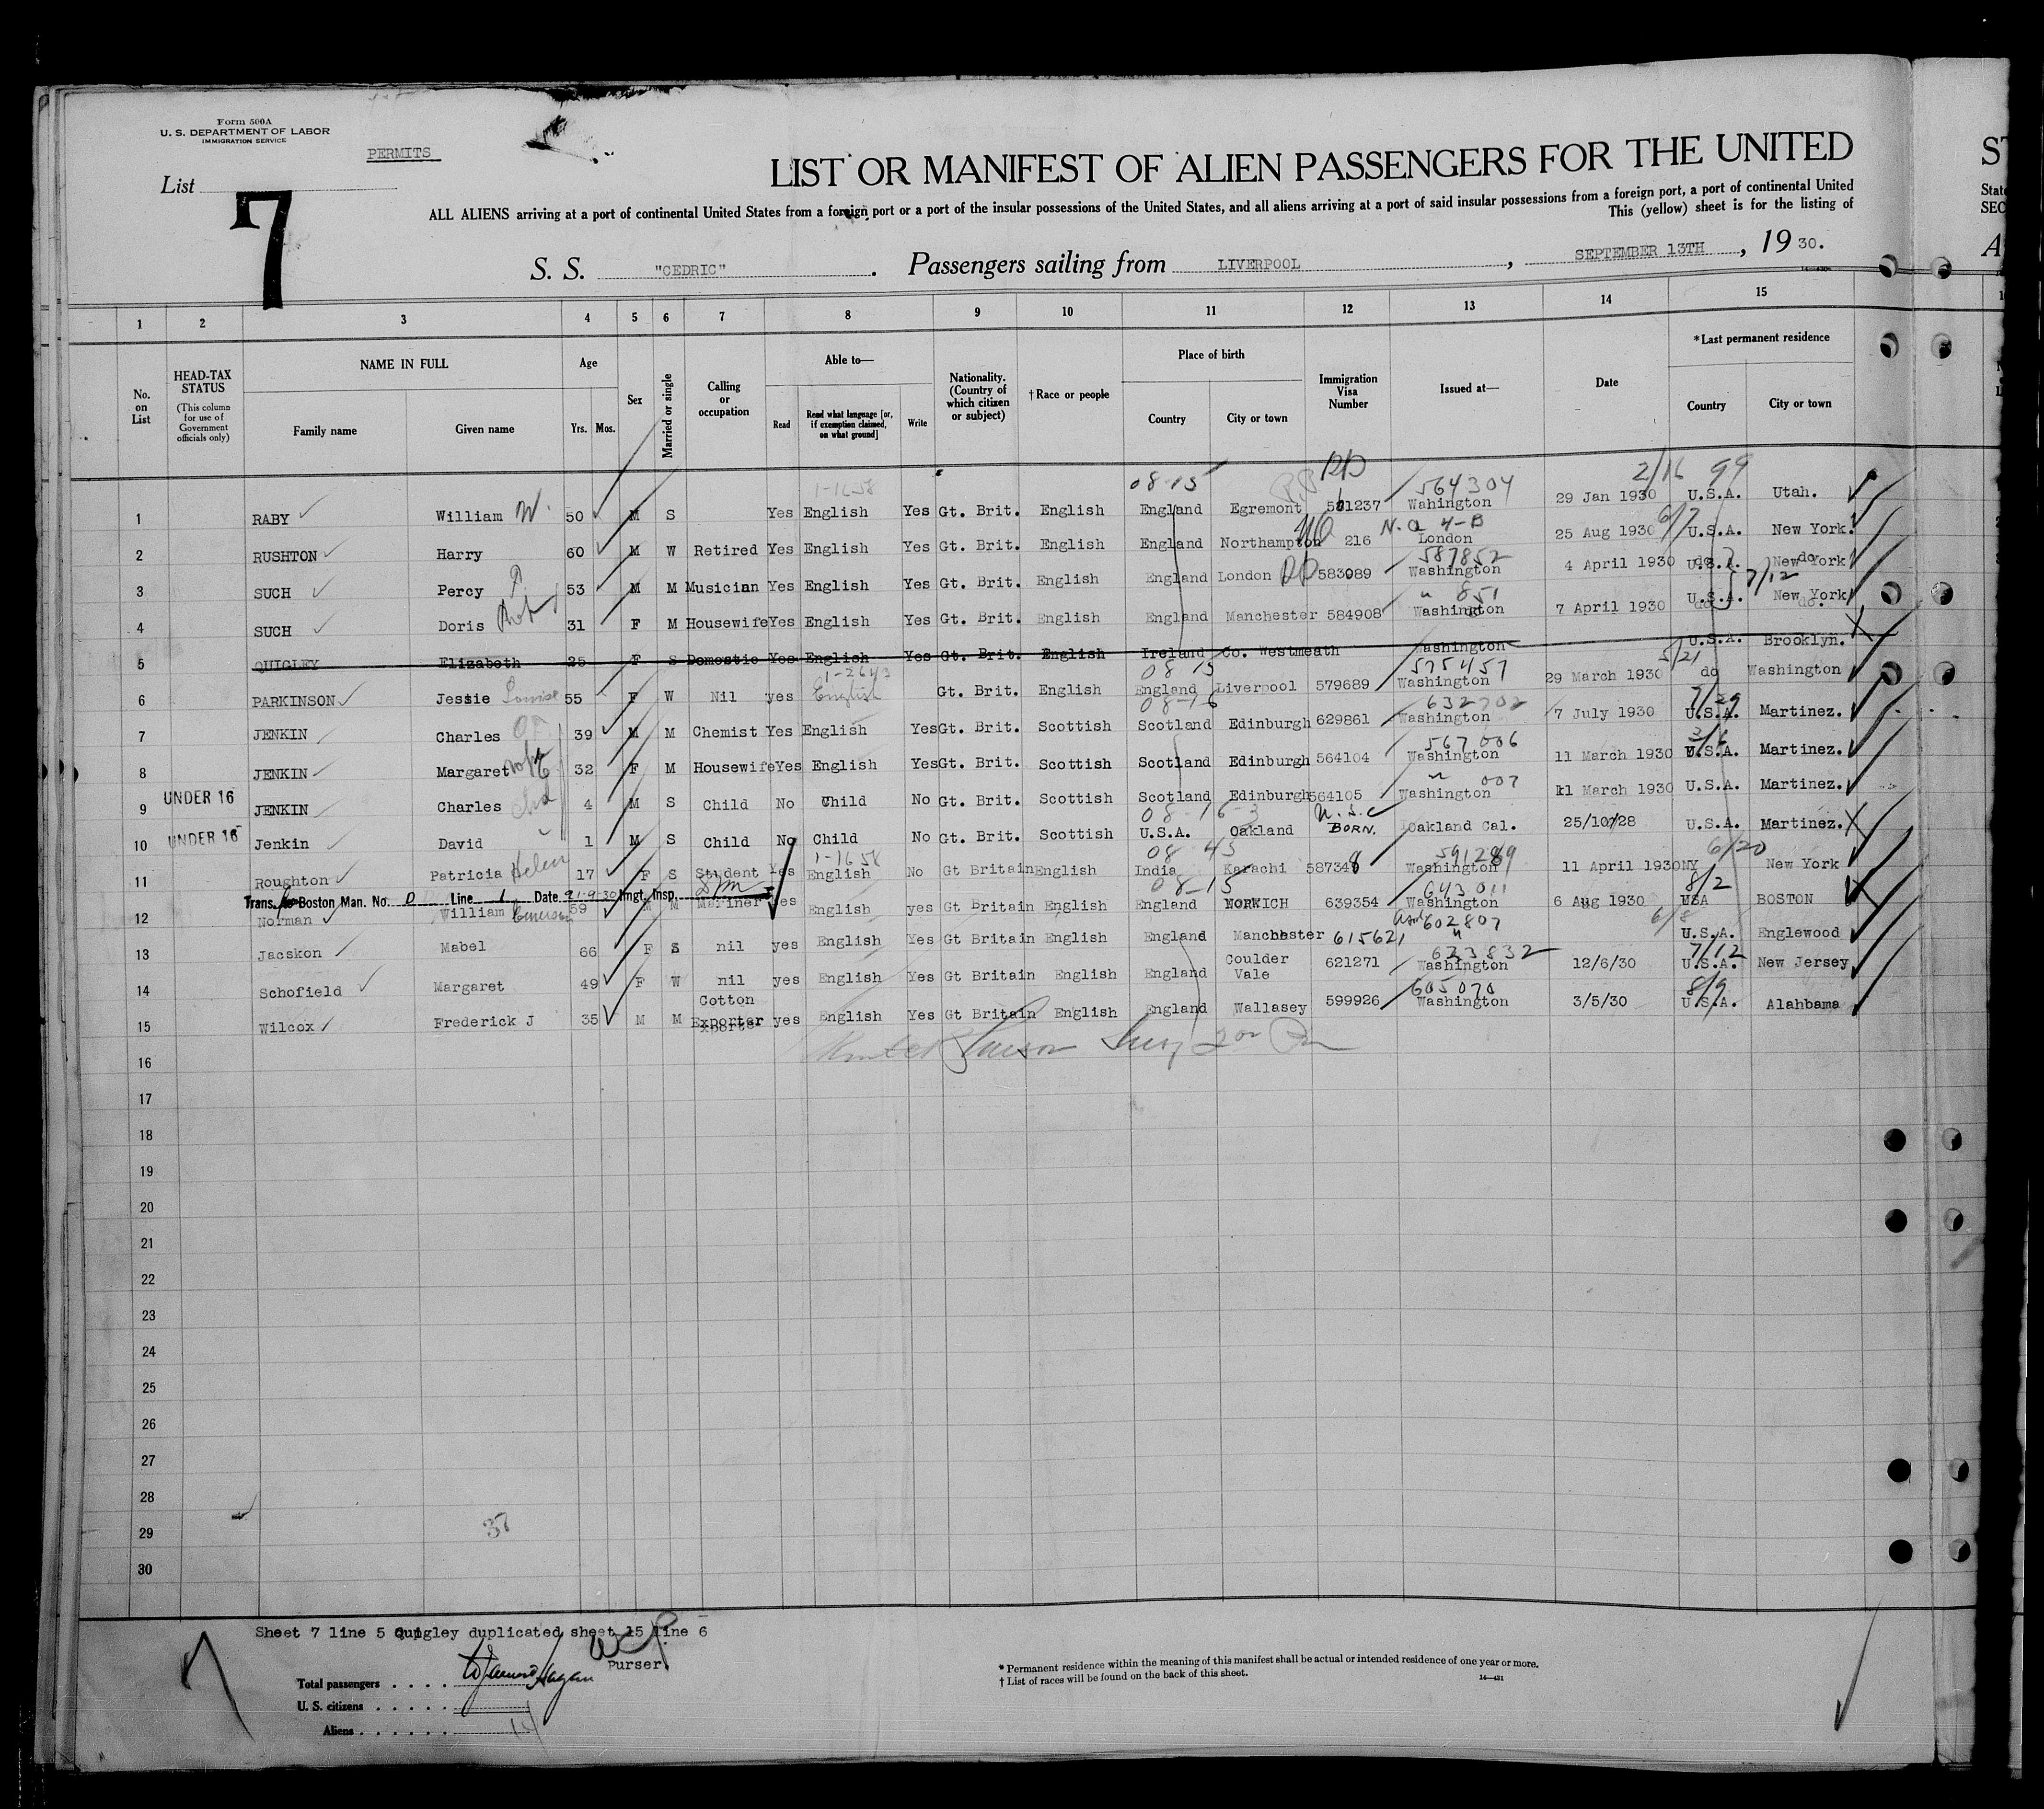 Form 500A
U. S. DEPARTMENT OF LABOR
IMMIGRATION SERVICE
PERMITS
List
7
LIST OR MANIFEST OF ALIEN PASSENGERS FOR THE UNITED
ALL ALIENS arriving at a port of continental United States from a foreign port or a port of the insular possessions of the United States, and all aliens arriving at a port of said insular possessions from a foreign port, a port of continental United
This (yellow) sheet is for the listing of
S. S. "CEDRIC" . Passengers sailing from LIVERPOOL , SEPTEMBER 13TH , 19 30.
1 2 3 4 5 6 7 8 9 10 11 12 13 14 15
No. on List
HEAD-TAX STATUS
(This column for use of Government officials only)
NAME IN FULL
Family name Given name
Age
Yrs. Mos.
Sex
Married or single
Calling or occupation
Able to—
Read
Read what language [or, if exemption claimed, on what ground]
Write
Nationality. (Country of which citizen or subject)
† Race or people
Place of birth
Country City or town
Immigration Visa Number
Issued at—
Date
* Last permanent residence
Country City or town
08-15 2/16 99
1-1658 564304
1 RABY William W. 50 M S Yes English Yes Gt. Brit. English England Egremont 561237 Wahington 29 Jan 1930 U.S.A. Utah.
N.Q 4-B 6/7
2 RUSHTON Harry 60 M W Retired Yes English Yes Gt. Brit. English England Northampton 216 London 25 Aug 1930 U.S.A. New York.
587852
3 SUCH Percy 53 M M Musician Yes English Yes Gt. Brit. English England London 583089 Washington 4 April 1930 U.S.A. New York
" 851 7/12
4 SUCH Doris 31 F M Housewife Yes English Yes Gt. Brit. English England Manchester 584908 Washington 7 April 1930 U.S.A. New York
5 QUIGLEY Elizabeth 25 F S Domestic Yes English Yes Gt. Brit. English Ireland Co. Westmeath Washington U.S.A. Brooklyn.
1-2643 08 15 575457 5/21
6 PARKINSON Jessie Louise 55 F W Nil yes English Gt. Brit. English England Liverpool 579689 Washington 29 March 1930 do Washington
08-16 632702 7/29
7 JENKIN Charles 39 M M Chemist Yes English Yes Gt. Brit. Scottish Scotland Edinburgh 629861 Washington 7 July 1930 U.S.A. Martinez.
567006 3/6
8 JENKIN Margaret 32 F M Housewife Yes English Yes Gt. Brit. Scottish Scotland Edinburgh 564104 Washington 11 March 1930 U.S.A. Martinez.
" 007
9 UNDER 16 JENKIN Charles 4 M S Child No Child No Gt. Brit. Scottish Scotland Edinburgh 564105 Washington 11 March 1930 U.S.A. Martinez.
08-16-3 U.S.C
10 UNDER 16 Jenkin David 1 M S Child No Child No Gt. Brit. Scottish U.S.A. Oakland BORN. Oakland Cal. 25/10/28 U.S.A. Martinez.
1-1658 08 45 591289 6/20
11 Roughton Patricia Helen 17 F S Student Yes English No Gt Britain English India Karachi 587348 Washington 11 April 1930 NY New York
Trans. to Boston Man. No. D Line 1 Date 9-1-9-30 Imgt. Insp.
08-15 643011 8/2
12 Norman William Emerson 59 M M Mariner yes English yes Gt Britain English England NORWICH 639354 Washington 6 Aug 1930 USA BOSTON
602807 6/8
13 Jacskon Mabel 66 F S nil yes English Yes Gt Britain English England Manchester 615621 " U.S.A. Englewood
623832 7/12
14 Schofield Margaret 49 F W nil yes English Yes Gt Britain English England Coulder Vale 621271 Washington 12/6/30 U.S.A. New Jersey
605070 8/9
15 Wilcox Frederick J 35 M M Cotton Exporter yes English Yes Gt Britain English England Wallasey 599926 Washington 3/5/30 U.S.A. Alahbama
16
17
18
19
20
21
22
23
24
25
26
27
28
29
30
37
Sheet 7 line 5 Quigley duplicated sheet 15 line 6
Purser.
Total passengers . . . .
U. S. citizens . . . . .
Aliens . . . . . . 14
* Permanent residence within the meaning of this manifest shall be actual or intended residence of one year or more.
† List of races will be found on the back of this sheet.
14—431